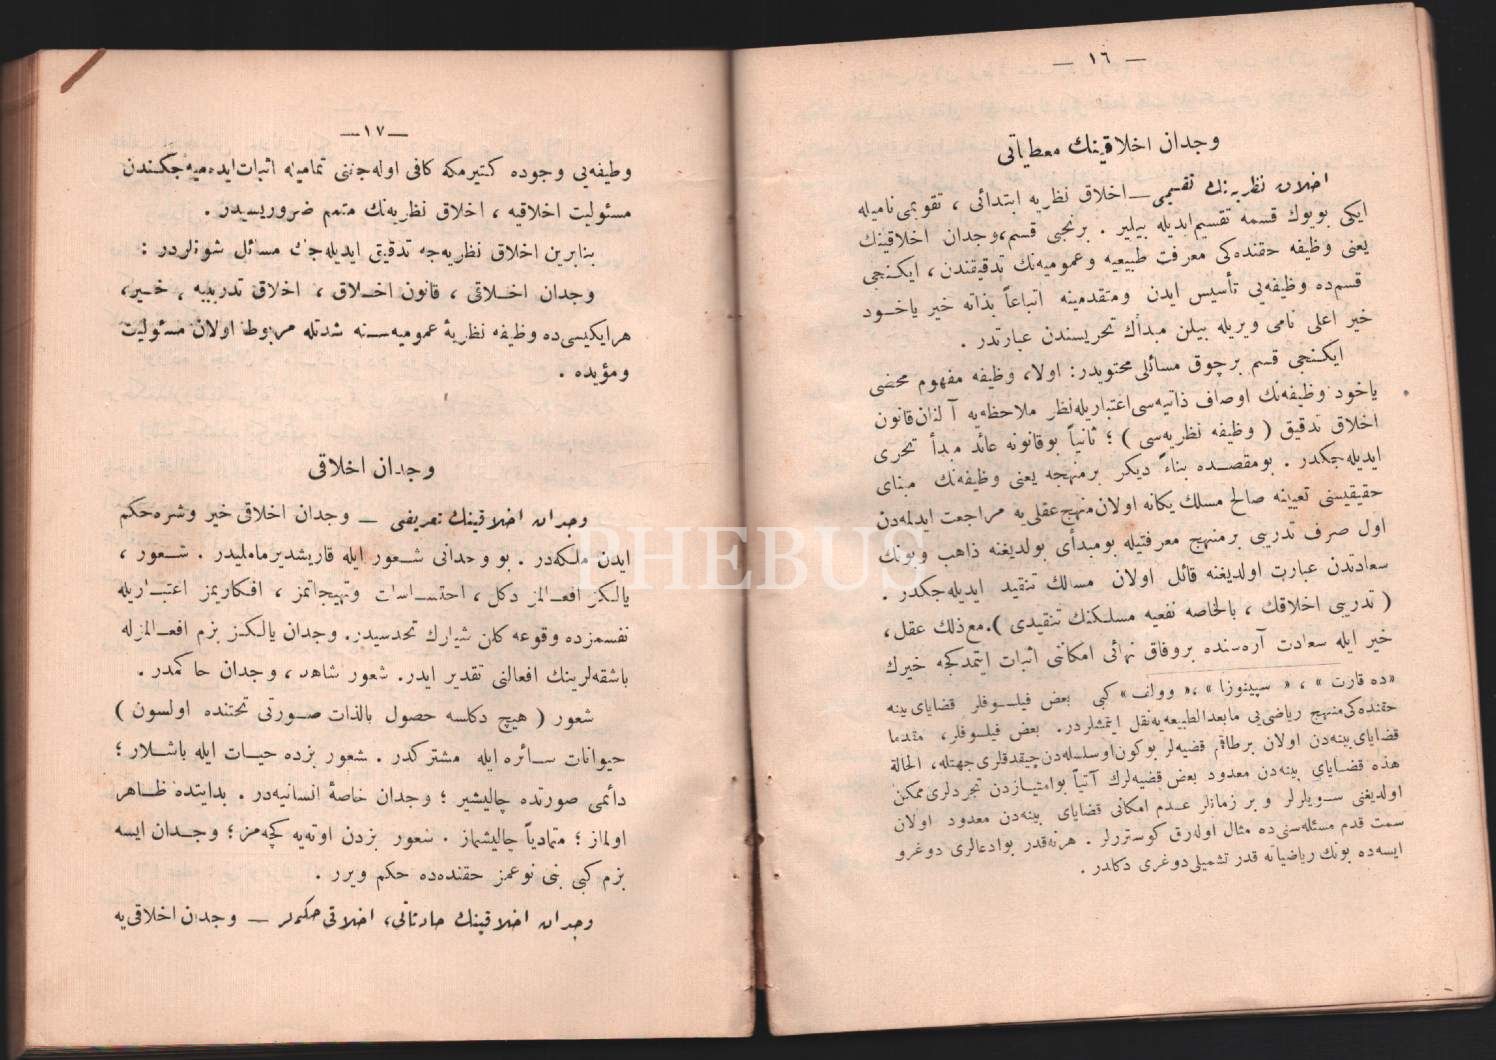 — ١٦ —
وجدان اخلاقینك معطیاتی
اخلاق نظریه‌نك تقسیمی — اخلاق نظریه ابتدائی ، تقویمی نامیله
ایكی بویوك قسمه تقسیم ایدیله بیلیر . برنجی قسم، وجدان اخلاقینك
یعنی وظیفه حقنده‌كی معرفت طبیعیه وعمومیه‌نك تدقیقندن ، ایكنجی
قسم‌ده وظیفه‌یی تأسیس ایدن ومتقدمینه اتباعاً بذاته خیر یاخود
خیر اعلی نامی ویریله بیلن مبدأك تحریسندن عبارتدر .
ایكنجی قسم برچوق مسائلی محتویدر: اولا، وظیفه مفهوم محضی
یاخود وظیفه‌نك اوصاف ذاتیه‌سی اعتباریله‌نظر ملاحظه‌یه آلنان قانون
اخلاق تدقیق ( وظیفه نظریه‌سی ) ؛ ثانیاً بوقانونه عائد مبدأ تحری
ایدیله‌جكدر . بومقصده بناءً دیكر برمنهجه یعنی وظیفه‌نك مبنای
حقیقیسنی تعیینه صالح مسلك یكانه اولان منهج عقلی‌یه مراجعت ایدلمه‌دن
اول صرف تدریبی برمنهج معرفتیله بومبدأی بولدیغنه ذاهب وبونك
سعادتدن عبارت اولدیغنه قائل اولان مسالك تنقید ایدیله‌جكدر .
( تدریبی اخلاقك ، بالخاصه نفعیه مسلكنك تنقیدی ). مع‌ذلك عقل،
خیر ایله سعادت آره‌سنده بروفاق نهائی امكاننی اثبات ایتمدكجه خیرك
«ده قارت » ، « سپینوزا » ،« وولف» كبی بعض فیلسوفلر قضایای بینه
حقنده‌كی منهج ریاضی‌یی مابعدالطبیعه‌یه‌نقل ایتمشلردر. بعض فیلسوفلر، متقدما
قضایای بینه‌دن اولان برطاقم قضیه‌لر بوكون‌اوسلسله‌دن چیقدقلری جهتله، الحالة
هذه قضایای بینه‌دن معدود بعض قضیه‌لرك آتیاً بوامتیازدن تجردلری ممكن
اولدیغنی سویلرلر و بر زمانلر عدم امكانی قضایای بینه‌دن معدود اولان
سمت قدم مسئله‌سنی‌ده مثال اوله‌رق كوستررلر . هرنه‌قدر بوادعالری دوغرو
ایسه‌ده بونك ریاضیاته قدر تشمیلی دوغری دكلدر .
— ١٧ —
وظیفه‌یی وجوده كتیرمكه كافی اوله‌جغنی تمامیله اثبات ایده‌میه‌جكندن
مسئولیت اخلاقیه ، اخلاق نظریه‌نك متمم ضروریسیدر .
بنابرین اخلاق نظریه‌جه تدقیق ایدیله‌جك مسائل شونلردر :
وجدان اخلاقی ، قانون اخلاق ، اخلاق تدریبیه ، خیر،
هرایكیسی‌ده وظیفه نظریهٔ عمومیه‌سنه شدتله مربوط اولان مسئولیت
ومؤیده .
وجدان اخلاقی
وجدان اخلاقینك تعریفی — وجدان اخلاقی خیر وشره حكم
ایدن ملكه‌در . بو وجدانی شعور ایله قاریشدیرماملیدر . شعور ،
یالكز افعالمز دكل ، احتساسات وتهیجاتمز ، افكاریمز اعتباریله
نفسمزده وقوعه كلن شیلرك تحدسیدر. وجدان یالكز بزم افعالمزله
باشقه‌لرینك افعالنی تقدیر ایدر. شعور شاهد ، وجدان حاكمدر .
شعور ( هیچ دكلسه حصول بالذات صورتی تحتنده اولسون )
حیوانات سائره ایله مشتركدر . شعور بزده حیات ایله باشلار ؛
دائمی صورتده چالیشیر ؛ وجدان خاصهٔ انسانیه‌در . بدایتده ظاهر
اولماز ؛ متمادیاً چالیشماز . شعور بزدن اوته‌یه كچه‌مز ؛ وجدان ایسه
بزم كبی بنی نوعمز حقنده‌ده حكم ویرر .
وجدان اخلاقینك حادثاتی، اخلاقی حكملر — وجدان اخلاقی‌یه
PHEBUS